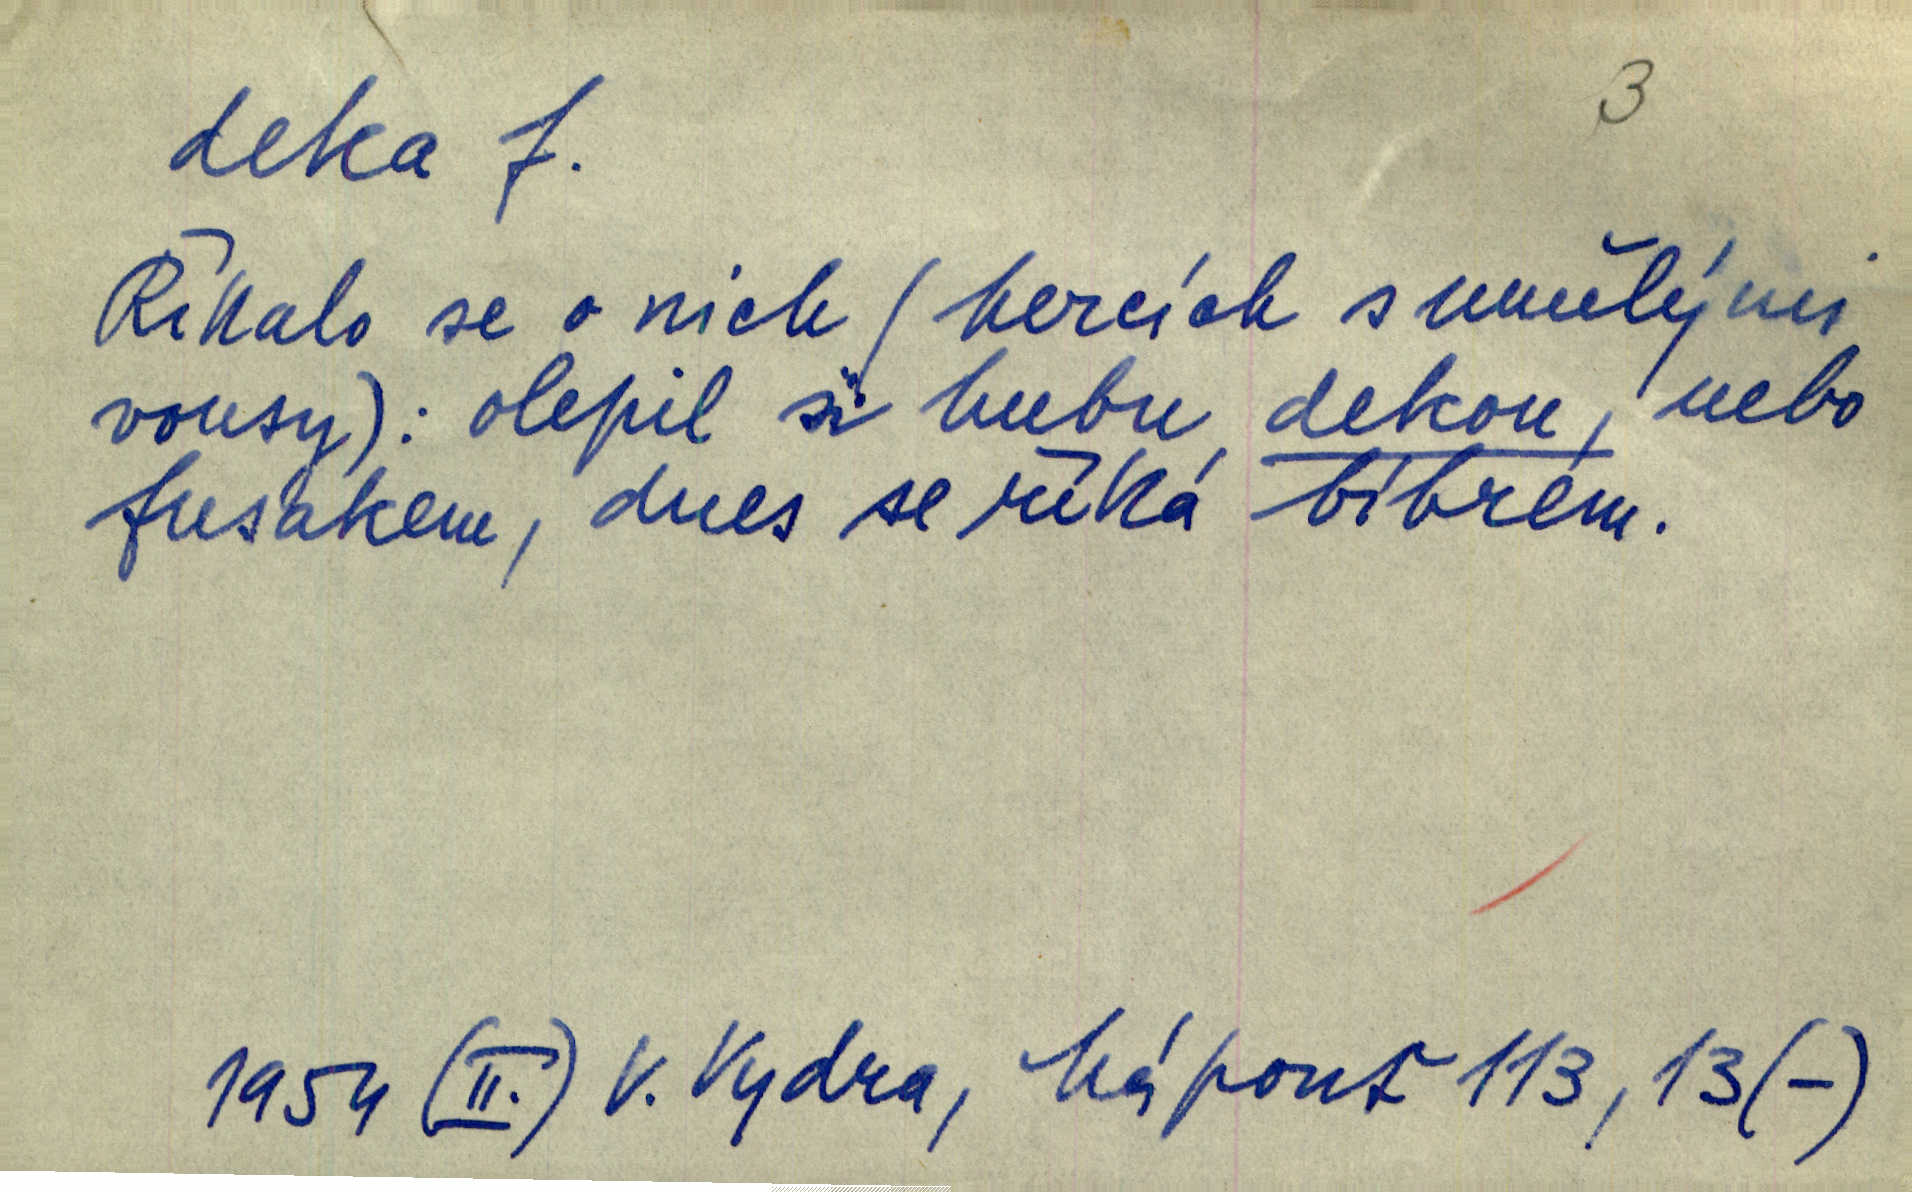 3
deka f.
Říkalo se o nich (hercích s umělými
vousy): olepil si hubu dekou, nebo
fusakem, dnes se říká bibrem.
1954 (II.) V. Vydra, Má pouť 113, 13 (-)